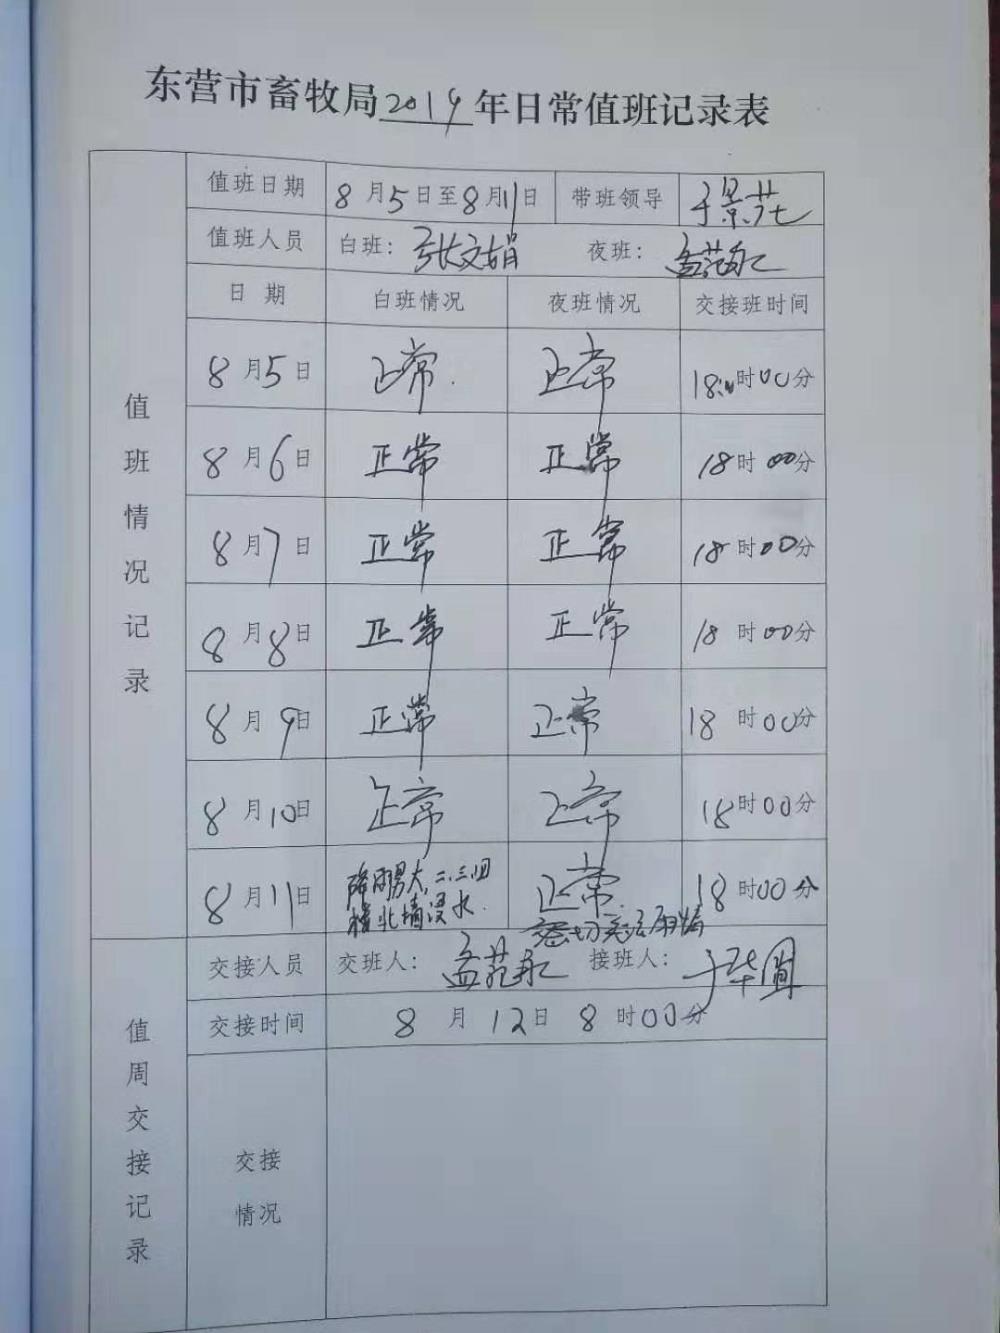 东营市畜牧局2019年日常值班记录表
值班日期 8月5日至8月11日 带班领导 于景芘
值班人员 白班：张文娟 夜班：孟范
日期 白班情况 夜班情况 交接班时间
值班情况记录
8月5日 正常. 正常 18:00时00分
8月6日 正常 正常 18时00分
8月7日 正常 正常 18时00分
8月8日 正常 正常 18时00分
8月9日 正常 正常 18时00分
8月10日 正常 正常 18时00分
8月11日 降雨 大，二、三、四 正常. 18时00分
楼北墙浸水. 密切关注雨情
交接人员 交班人： 接班人：于华
交接时间 8月12日8时00分
值周交接记录
交接
情况